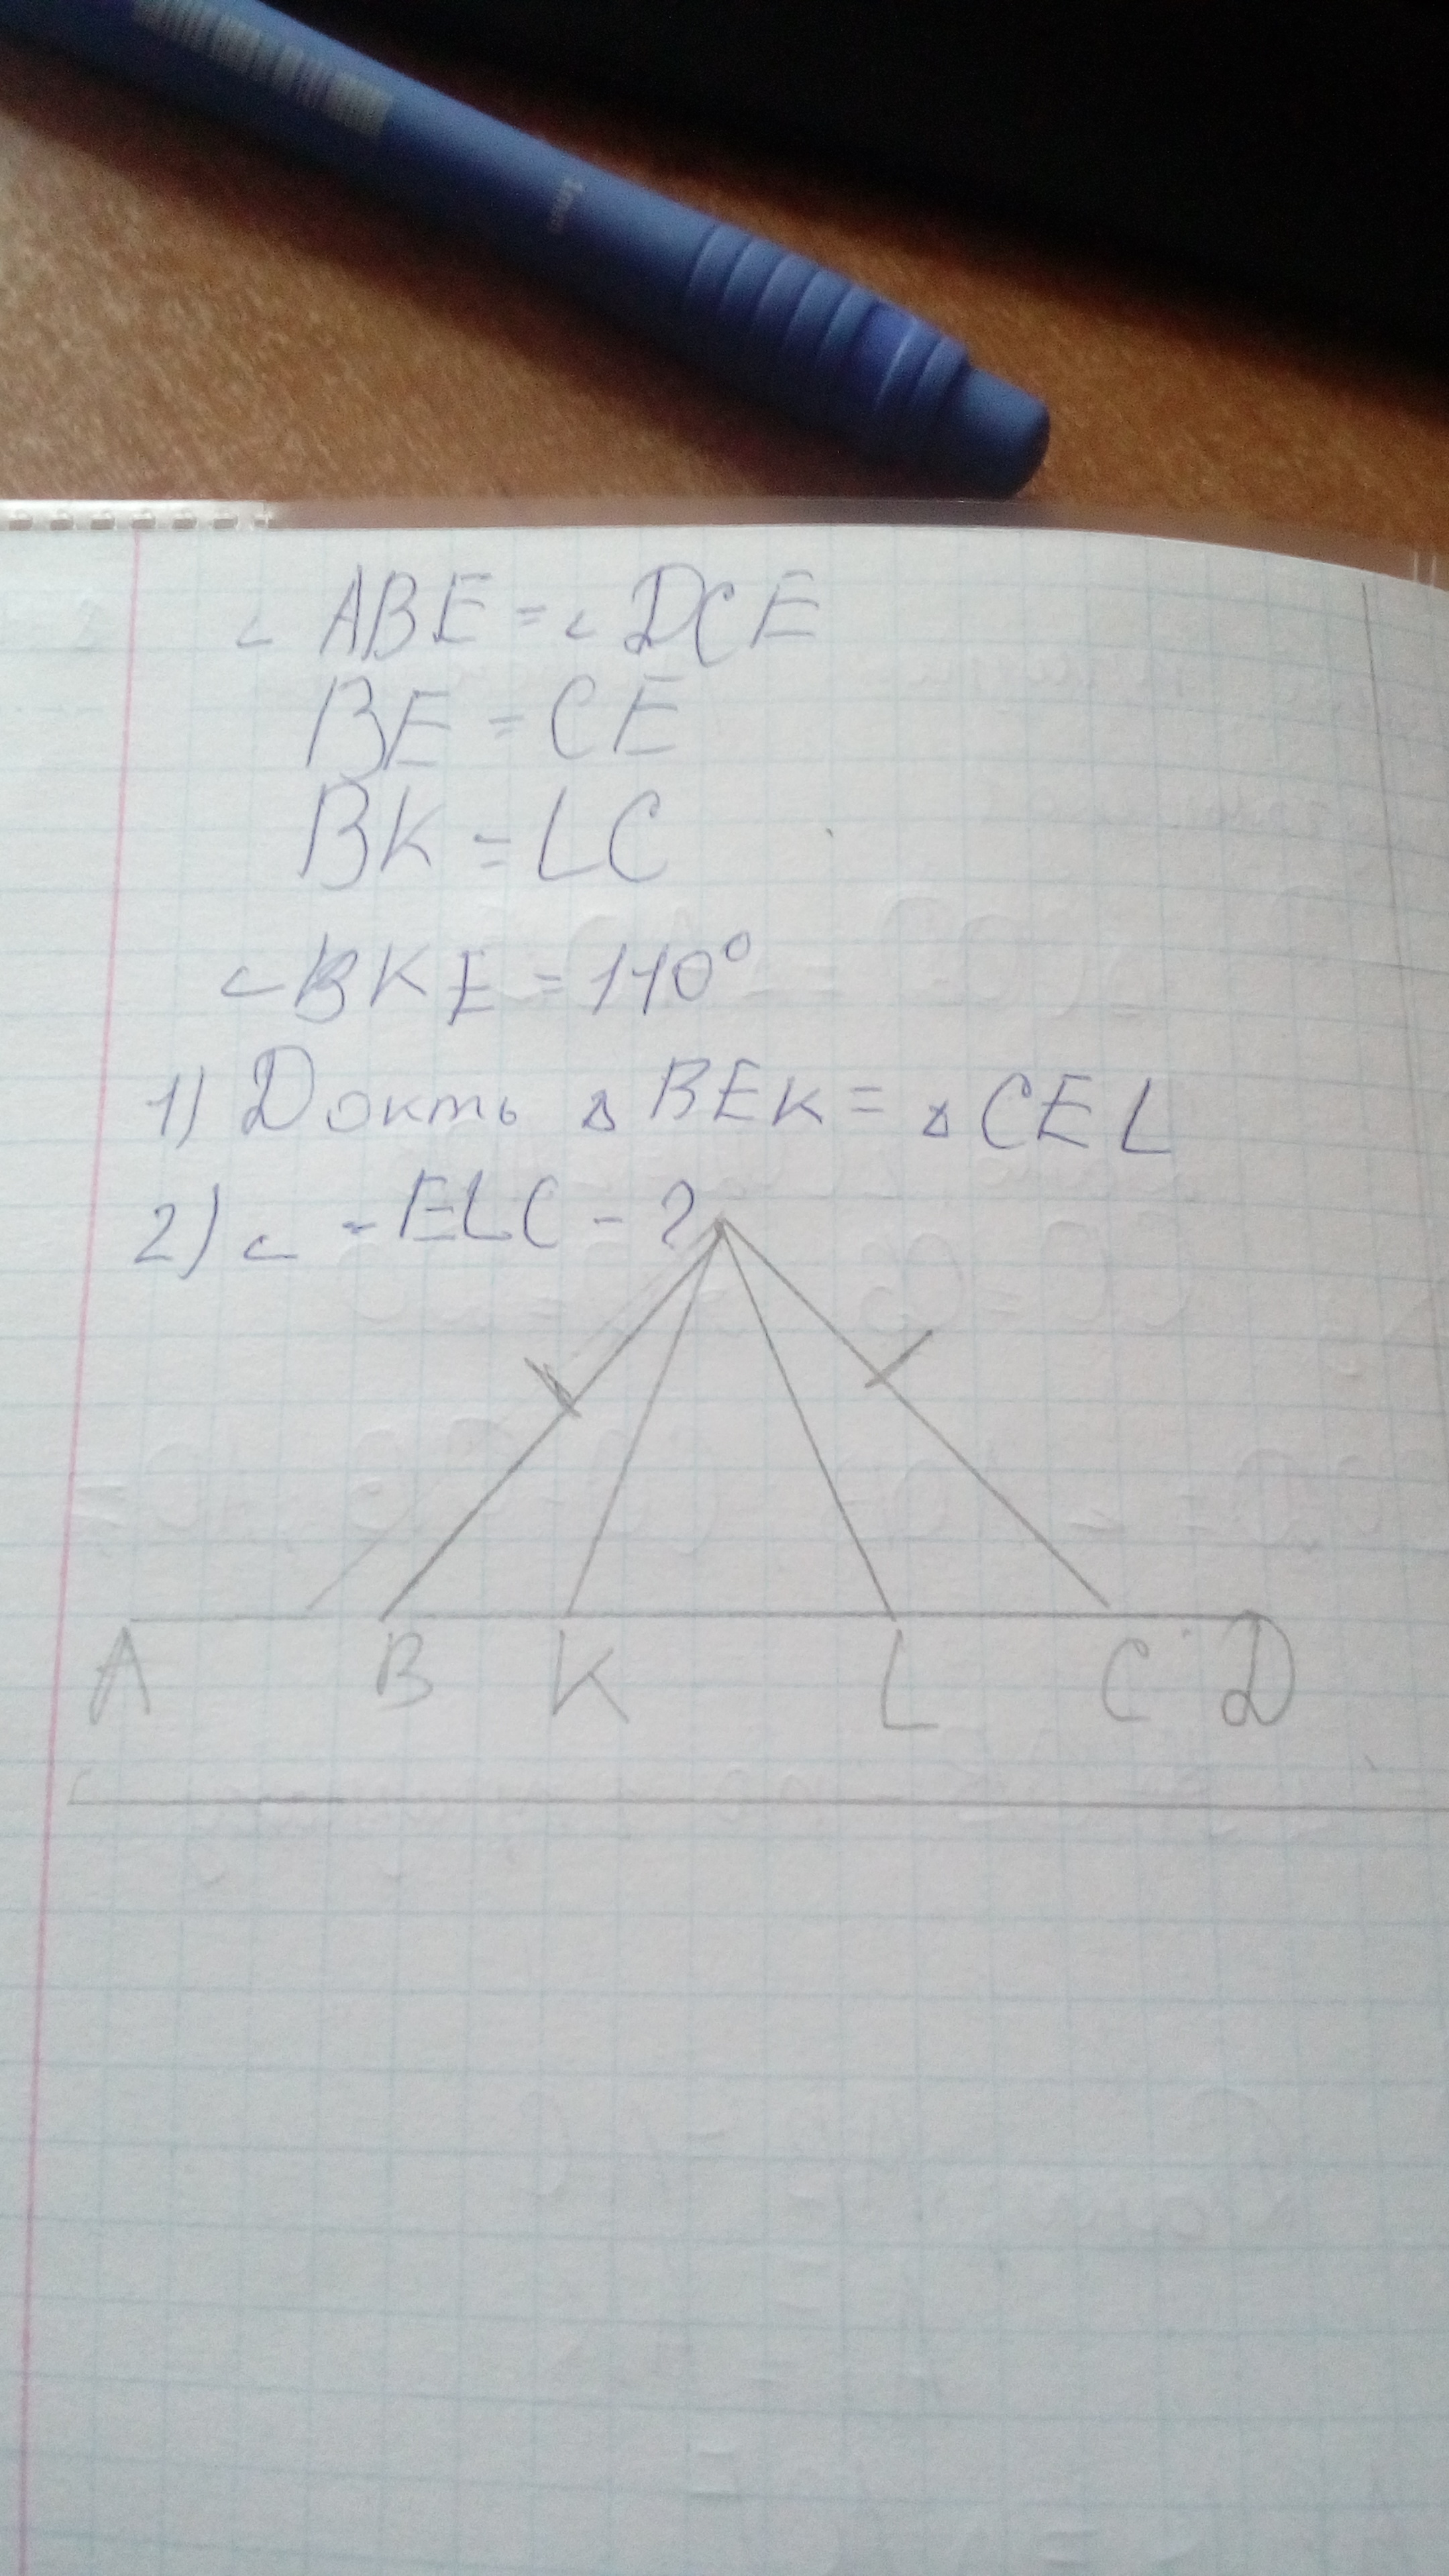 ∠ ABE = ∠ DCE
BE = CE
BK = LC
∠BKE = 110°
1) Докть Δ BEK = Δ CEL
2) ∠ - ELC - ?
A B K L C D